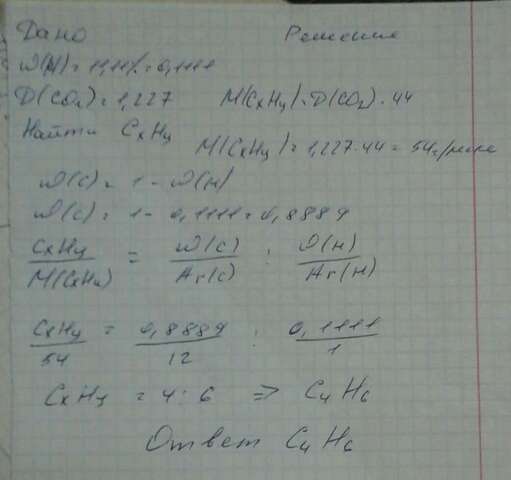 Дано Решение
ω(H) = 11,11% = 0,1111
D(CO₂) = 1,227 M(CxHy) = D(CO₂) · 44
Найти CxHy
M(CxHy) = 1,227 · 44 = 54 г/моль
ω(C) = 1 - ω(H)
ω(C) = 1 - 0,1111 = 0,8889
CxHy/M(CxHy) = ω(C)/Ar(C) : ω(H)/Ar(H)
CxHy/54 = 0,8889/12 : 0,1111/1
CxHy = 4 : 6 => C₄H₆
Ответ C₄H₆